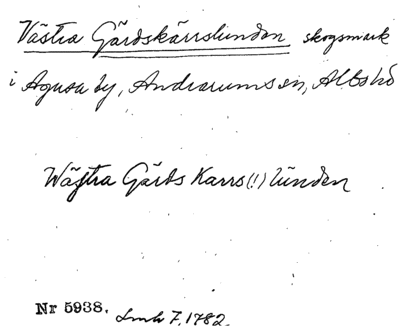 Västra Gärdskärrslunden skogsmark
i Agusa by, Andrarums sn, Albo hd
Wästra Gärds Karrs(!) lunden
Nr 5938. Lmh 7, 1782.